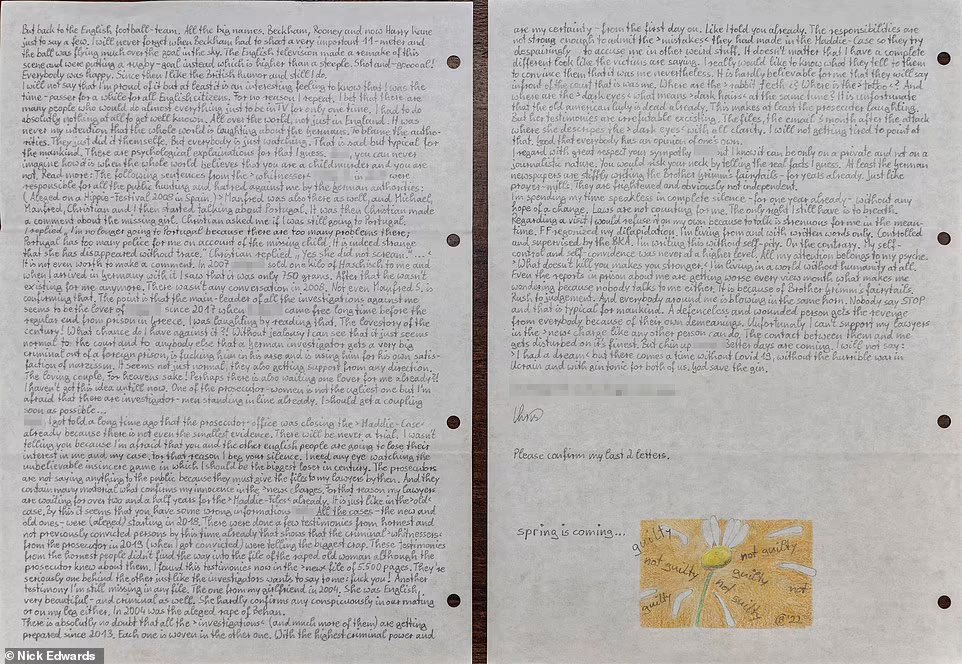 But back to the English football-team. All the big names. Beckham, Rooney and now Harry Kane
just to say a few. I will never forget when Beckham had to shoot a very important 11-meter and
the ball was flying much over the goal in the sky. The English television made a remake of this
scene and were putting a rugby-goal instead which is higher than a steeple. Shot and-goooal!
Everybody was happy. Since then I like the British humor and still I do.
I will not say that I'm proud of but at least it is an interesting feeling to know that I was the
time-passer for a while for all English citizens. For no reason, I repeat, I bet that there are
many people who would do almost everything just to be in TV for only one time. I had to do
absolutely nothing at all to get well known. All over the world, not just in England. It was
never my intention that the whole world is laughing about the germans. To blame the autho-
rities. They just did it themself. But everybody is just watching. That is sad but typical for
the mankind. There are psychological explanations for that I guess. you can never
imagine how it is when the whole world believes that you are a childmurder and you are
not. Read more: The following sentences from the >whitnesser< in were
responsible for all the public hunting and hatred against me by the german authorities:
(Aleged on a Hippie-Festival 2008 in Spain) >Manfred was also there as well, and Michael,
Manfred, Christian and I then started talking about Portugal. It was then Christian made
a comment about the missing girl. Christian asked me if I was still going to Portugal.
I replied „I'm no longer going to Portugal because there are too many problems there;
Portugal has too many police for me on account of the missing child. It is indeed strange
that she has disappeared without trace." Christian replied „Yes she did not scream."...<
It is not even worth to make a comment. In 2007 sold one kilo of Haschisch to me and
when I arrived in Germany with it I saw that it was only 750 grams. After that he wasn't
existing for me anymore. There wasn't any conversation in 2008. Not even Manfred S. is
confirming that. The point is that the main-leader of all the investigations against me
seems to be the lover of since 2017 when came free long time before the
regular end from prison in Greece. I was laughing by reading that. The lovestory of the
century! What chance do I have against it?! Without jealousy I can see that it just seems
normal to the court and to anybody else that a german investigator gets a very big
criminal out of a foreign prison, is fucking him in his arse and is using him for his own satis-
faction of narcissm. It seems not just normal, they also getting support from any direction.
The loving couple. For heavens sake! Perhaps there is also waiting one lover for me already?!
I haven't got this idea until now. One of the prosecutor-women is not the ugliest one but I'm
afraid that there are investigator-men standing in line already. I should get a coupling
soon as possible...
I got told a long time ago that the prosecutor-office was closing the >Maddie-Case<
already because there is not even the smallest evidence. There will be never a trial. I wasn't
telling you because I'm afraid that you and the other english people are going to lose their
interest in me and my case, for that reason I beg your silence. I need any eye watching the
unbelievable insincere game in which I should be the biggest loser in century. The prosecutors
are not saying anything to the public because they must give the files to my lawyers by then. And they
contain many material what confirms my innocence in the >new< charges. For that reason my lawyers
are waiting for over two and a half years for the >Maddie-files< already. It is just like in the >old<
case. By this it seems that you have some wrong information All the cases - the new and
old ones - were (aleged) starting in 2013. There were done a few testimonies from honest and
not previously convicted persons by this time already that shows that the criminal >whitnessers<
from the prosecutor in 2019 (when I got convicted) were telling the biggest crap. These testimonies
from the honest people didn't find the way into the file of the raped old woman although the
prosecutor knew about them. I found this testimonies now in the >new< file of 5.500 pages. They're
seriously one behind the other just like the investigators wants to say to me: fuck you! Another
testimony I'm still missing in any file. The one from my girlfriend in 2004. She was English,
very beautiful - and criminal as well. She hardly confirms any conspiciously in our mating
or on my leg either. In 2004 was the aleged rape of Behan.
There is absolutely no doubt that all the >investigations< (and much more of them) are getting
prepared since 2013. Each one is woven in the other one. With the highest criminal power and
are my certainty - from the first day on. Like I told you already. The responsibilities are
not strong enough to admit the >mistakes< they had made in the Maddie-case so they try
despairingly to accuse me in other weird stuff. It doesn't matter that I have a complete
different look like the victims are saying. I really would like to know what they tell to them
to convince them that it was me nevertheless. It is hardly believable for me that they will say
infront of the court that is was me. Where are the >rabbit teeth<? Where is the >tattoo<? And
where are the >dark eyes< what means >dark hairs< at the same time? It is unfortunate
that the old american lady is dead already. This makes at least the prosecuter laughting.
But her testimonies are irrefutable excisting. The files, the email 3 month after the attack
where she describes the >dark eyes< with all clarity. I will not getting tired to point at
that. Good that everybody has an opinion of one's own.
I regard with great respect your sympathy but I know it can be only on a private and not on a
journalistic nature. You would risk your neck by telling the real facts I guess. At least the german
newspapers are stiffly writing the Brother Grimm's fairytails - for years already. Just like
prayer-mills. They are frightened and obviously not independent.
I'm spending my time speakless in complete silence - for one year already - without any
hope of a change. Laws are not counting for me. The only right I still have is to breeth.
Regarding a visit I would refuse it on my own because to talk is strenuous for me in the mean-
time. FF recognized my dilapidation. I'm living from and with written words only. Controlled
and supervised by the BKA. I'm writing this without self-pity. On the contrary. My self-
control and self-cofidence was never at a higher level. All my attention belongs to my psyche.
>What doesn't kill you makes you stronger<. I'm living in a world without humanity at all.
Even the reports in prison about me are getting worse every views month what makes me
wondering because nobody talks to me either. It is because of Brother grimm's fairytails.
Rush to judgement. And everybody around me is blowing in the same horn. Nobody say STOP
and that is typical for mankind. A defenceless and wounded person gets the revenge
from everybody because of their own demeanings. Unfortunatly I can't support my lawyers
in the >new< charge like any other person can do. The contact between them and me
gets disturbed on it's finest. But chin up Better days are coming. I will not say:
>I had a dream< but there comes a time without Covid 19, without the horrible war in
Ucrain and with gin tonic for both of us. God save the gun.
Chris
Please confirm my last 2 letters.
spring is coming...
guilty
not guilty
not guilty
guilty
not
guilty
not guilty
'22
© Nick Edwards